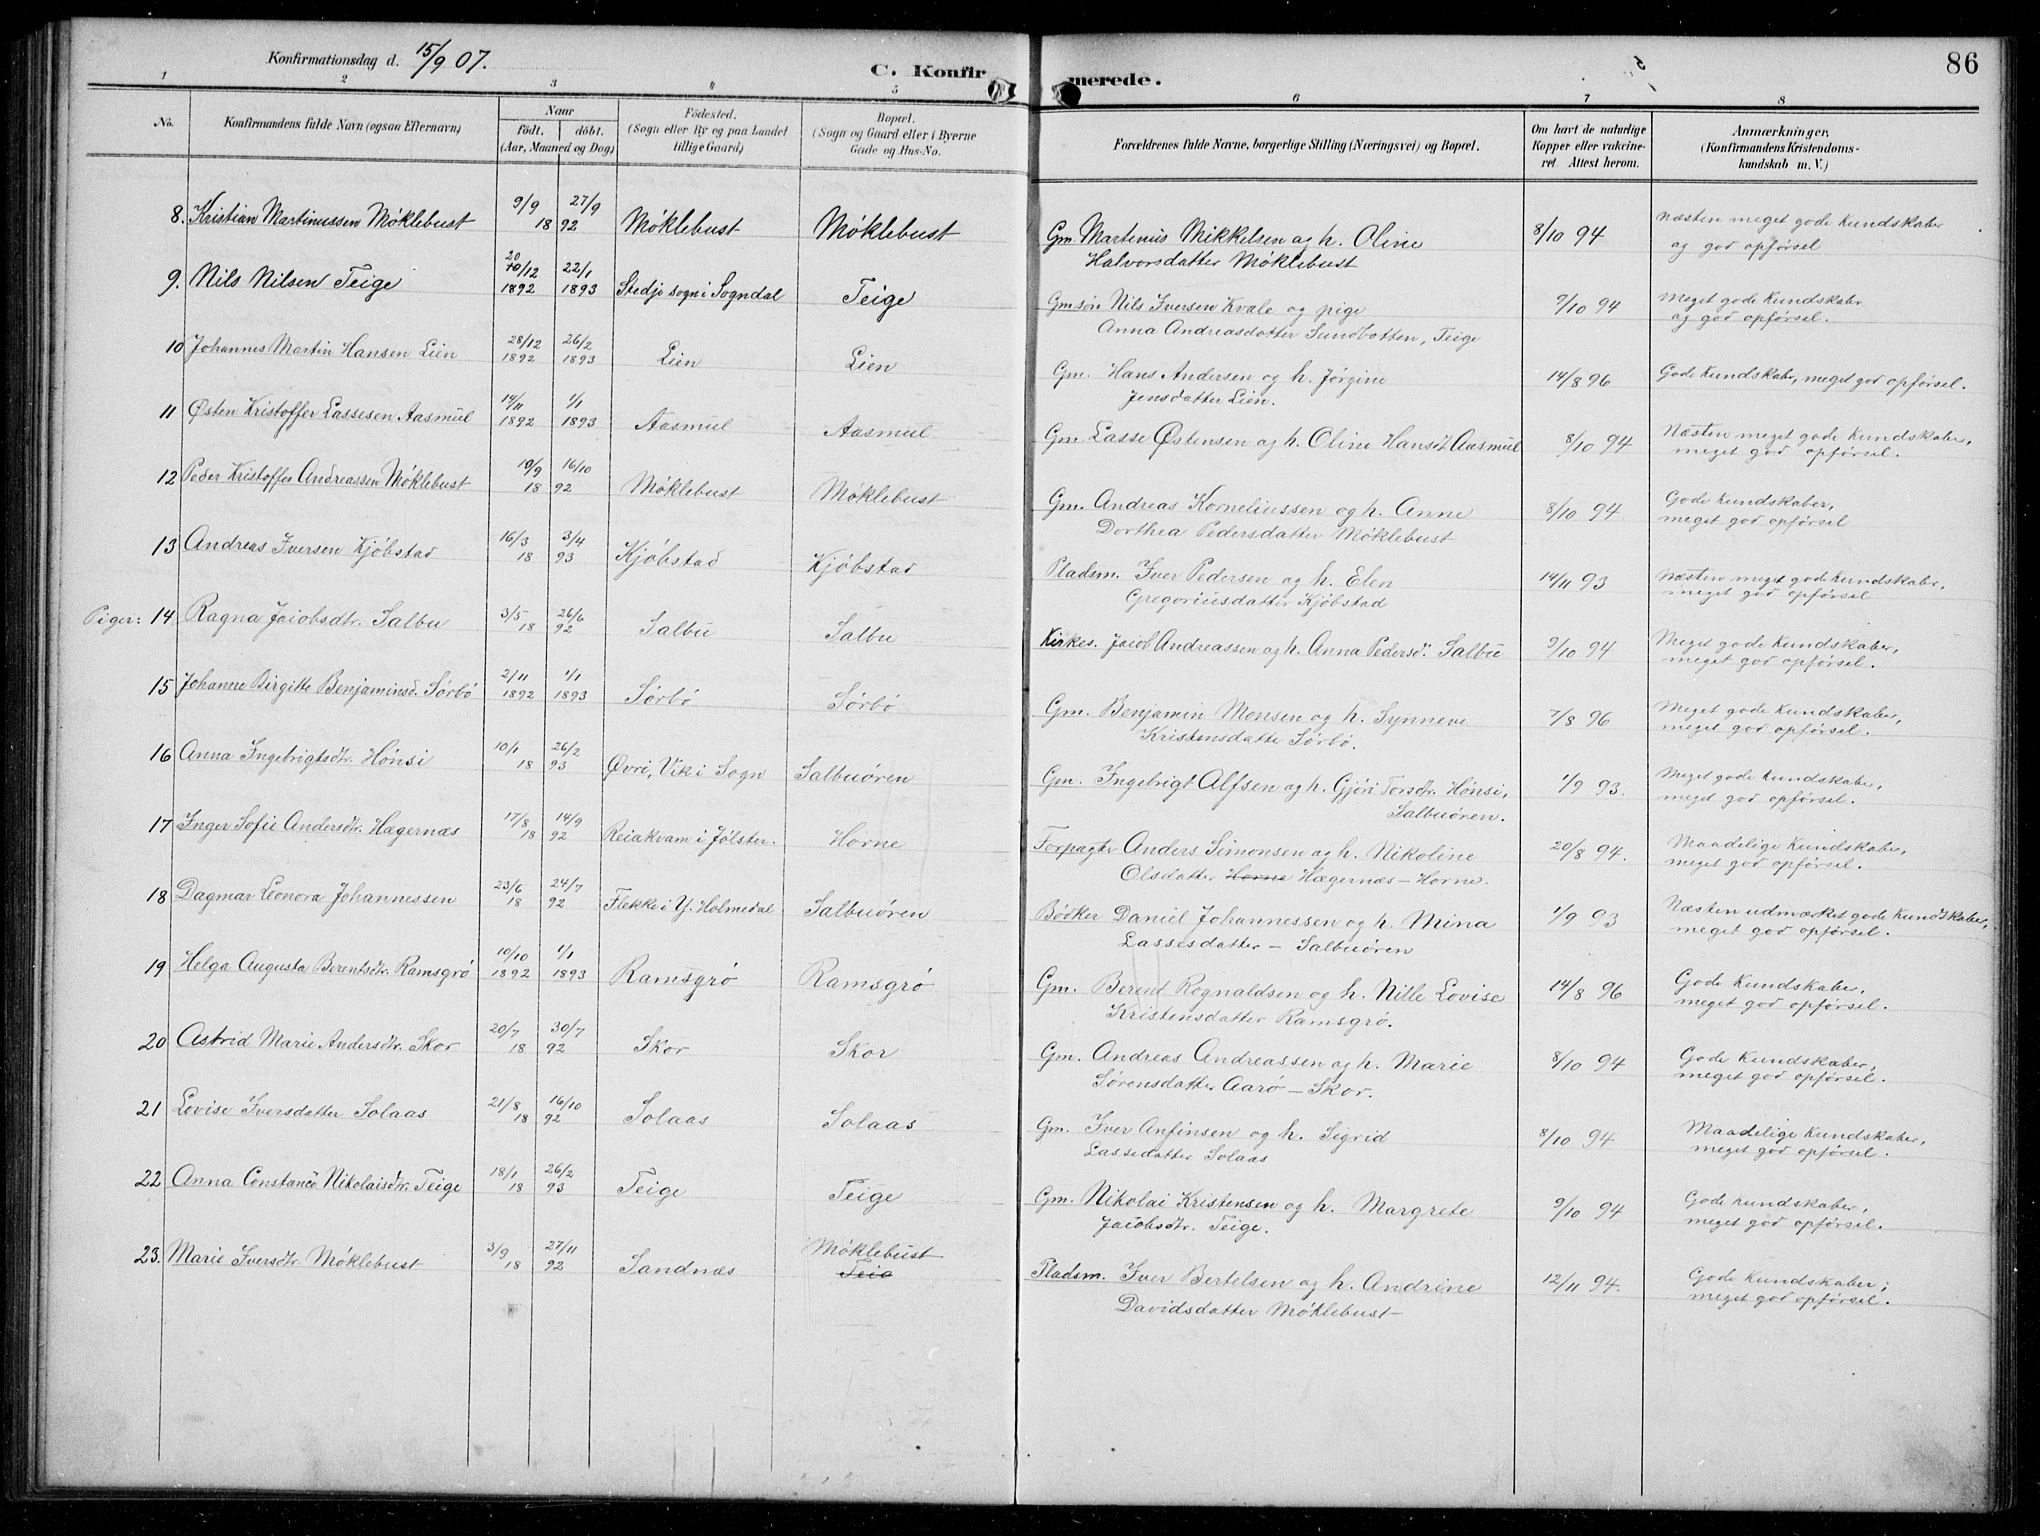 Konfirmationsdag d. 15/9 07.
C. Konfirmerede.
86
1 2 3 4 5 6 7 8
No.
Konfirmandens fulde Navn (ogsaa Efternavn)
Naar
födt. döbt.
(Aar, Maaned og Dag)
Födested.
(Sogn eller By og paa Landet
tillige Gaard)
Bopæl.
(Sogn og Gaard eller i Byerne
Gade og Hus-No.
Forældrenes fulde Navne, borgerlige Stilling (Næringsvei) og Bopæl.
Om havt de naturlige
Kopper eller vakcine-
ret Attest herom.
Anmærkninger,
(Konfirmandens Kristendoms-
kundskab m. V.)
8. Kristian Martinussen Möklebust 9/9 27/9 18 92 Möklebust Möklebust Gm. Martinus Mikkelsen og h. Oline 8/10 94 Næsten meget gode Kundskaber
Halvorsdatter Möklebust og god opførsel
9. Nils Nilsen Teige 20 10/12 1892 22/1 1893 Stedje sogn i Sogndal Teige Gmsøn Nils Iversen Kvale og pige 9/10 94 Meget gode Kundskaber
Anna Andreasdatter Sundbotten, Teige og god opførsel.
10 Johannes Martin Hansen Lien 28/12 1892 26/2 1893 Lien Lien Gm. Hans Andersen og h. Jørgine 14/8 96 Gode Kundskaber, meget god opførsel.
Jensdatter Lien.
11 Østen Kristoffer Lassesen Aasmul 14/11 1892 1/1 1893 Aasmul Aasmul Gm. Lasse Østensen og h. Oline Hansdt. Aasmul 8/10 94 Næsten meget gode Kundskaber,
meget god opførsel.
12 Peder Kristoffer Andreassen Möklebust 10/9 16/10 18 92 Möklebust Möklebust Gm. Andreas Korneliussen og h. Anne 8/10 94 Gode Kundskaber,
Dorthea Pedersdatter Möklebust meget god opførsel
13 Andreas Iversen Kjöbstad 16/3 3/4 18 93 Kjöbstad Kjöbstad Pladsm. Iver Pedersen og h. Elen 14/11 93 Næsten meget gode Kundskaber,
Gregoriusdatter Kjöbstad meget god opførsel
Piger: 14 Ragna Jacobsdtr. Salbu 3/5 26/6 18 92 Salbu Salbu Kirkes. Jacob Andreassen og h. Anna Pedersd. Salbu 9/10 94 Meget gode Kundskaber,
meget god opførsel.
15 Johanne Birgitte Benjaminsd. Sörbö 2/11 1892 1/1 1893 Sörbö Sörbö Gm. Benjamin Monsen og h. Synneve 7/8 96 Meget gode Kundskaber,
Kristensdatter Sörbö. meget god opførsel.
16 Anna Ingebrigtsdtr. Hönsi 10/1 26/2 18 93 Övri, Vik i Sogn Salbuören Gm. Ingebrigt Alfsen og h. Gjöri Torsdtr. Hönsi, 1/9 93. Meget gode Kundskaber,
Salbuören. meget god opførsel.
17 Inger Sofie Andersdtr. Hægernæs 17/8 14/9 18 92 Reiakvam i Jölster. Horne Forpagter Anders Simonsen og h. Nikoline 20/8 94. Maadelige Kundskaber,
Olsdatter Horne Hægernæs - Horne. meget god opførsel.
18 Dagmar Leonora Johannessen 23/6 24/7 18 92 Flekke i Y. Holmedal Salbuören Bödker Daniel Johannessen og h. Mina 1/9 93 Næsten udmærket gode Kundskaber,
Lassesdatter - Salbuören meget god opførsel.
19 Helga Augusta Berentsdtr. Ramsgrö 10/10 1892 1/1 1893 Ramsgrö Ramsgrö Gm. Berent Rognaldsen og h. Nille Lovise 14/8 96 Gode Kundskaber,
Kristensdatter Ramsgrö. meget god opførsel.
20 Astrid Marie Andersdtr. Skor 20/7 30/7 18 92 Skor Skor Gm. Andreas Andreassen og h. Marie 8/10 94 Gode Kundskaber,
Sörensdatter Aarö - Skor. meget god opførsel.
21 Lovise Iversdatter Solaas 21/8 16/10 18 92 Solaas Solaas Gm. Iver Anfinsen og h. Sigrid 8/10 94 Maadelige Kundskaber,
Lassedatter Solaas meget god opførsel.
22 Anna Constance Nikolaisdtr. Teige 18/1 26/2 18 93 Teige Teige Gm. Nikolai Kristensen og h. Margrete 9/10 94 Gode Kundskaber,
Jacobsdtr. Teige. meget god opførsel.
23. Marie Iversdtr. Möklebust 3/9 27/11 18 92 Sandnæs Möklebust Teig Pladsm. Iver Bertelsen og h. Andrine 12/11 94. Gode Kundskaber,
Davidsdatter Möklebust meget god opførsel.